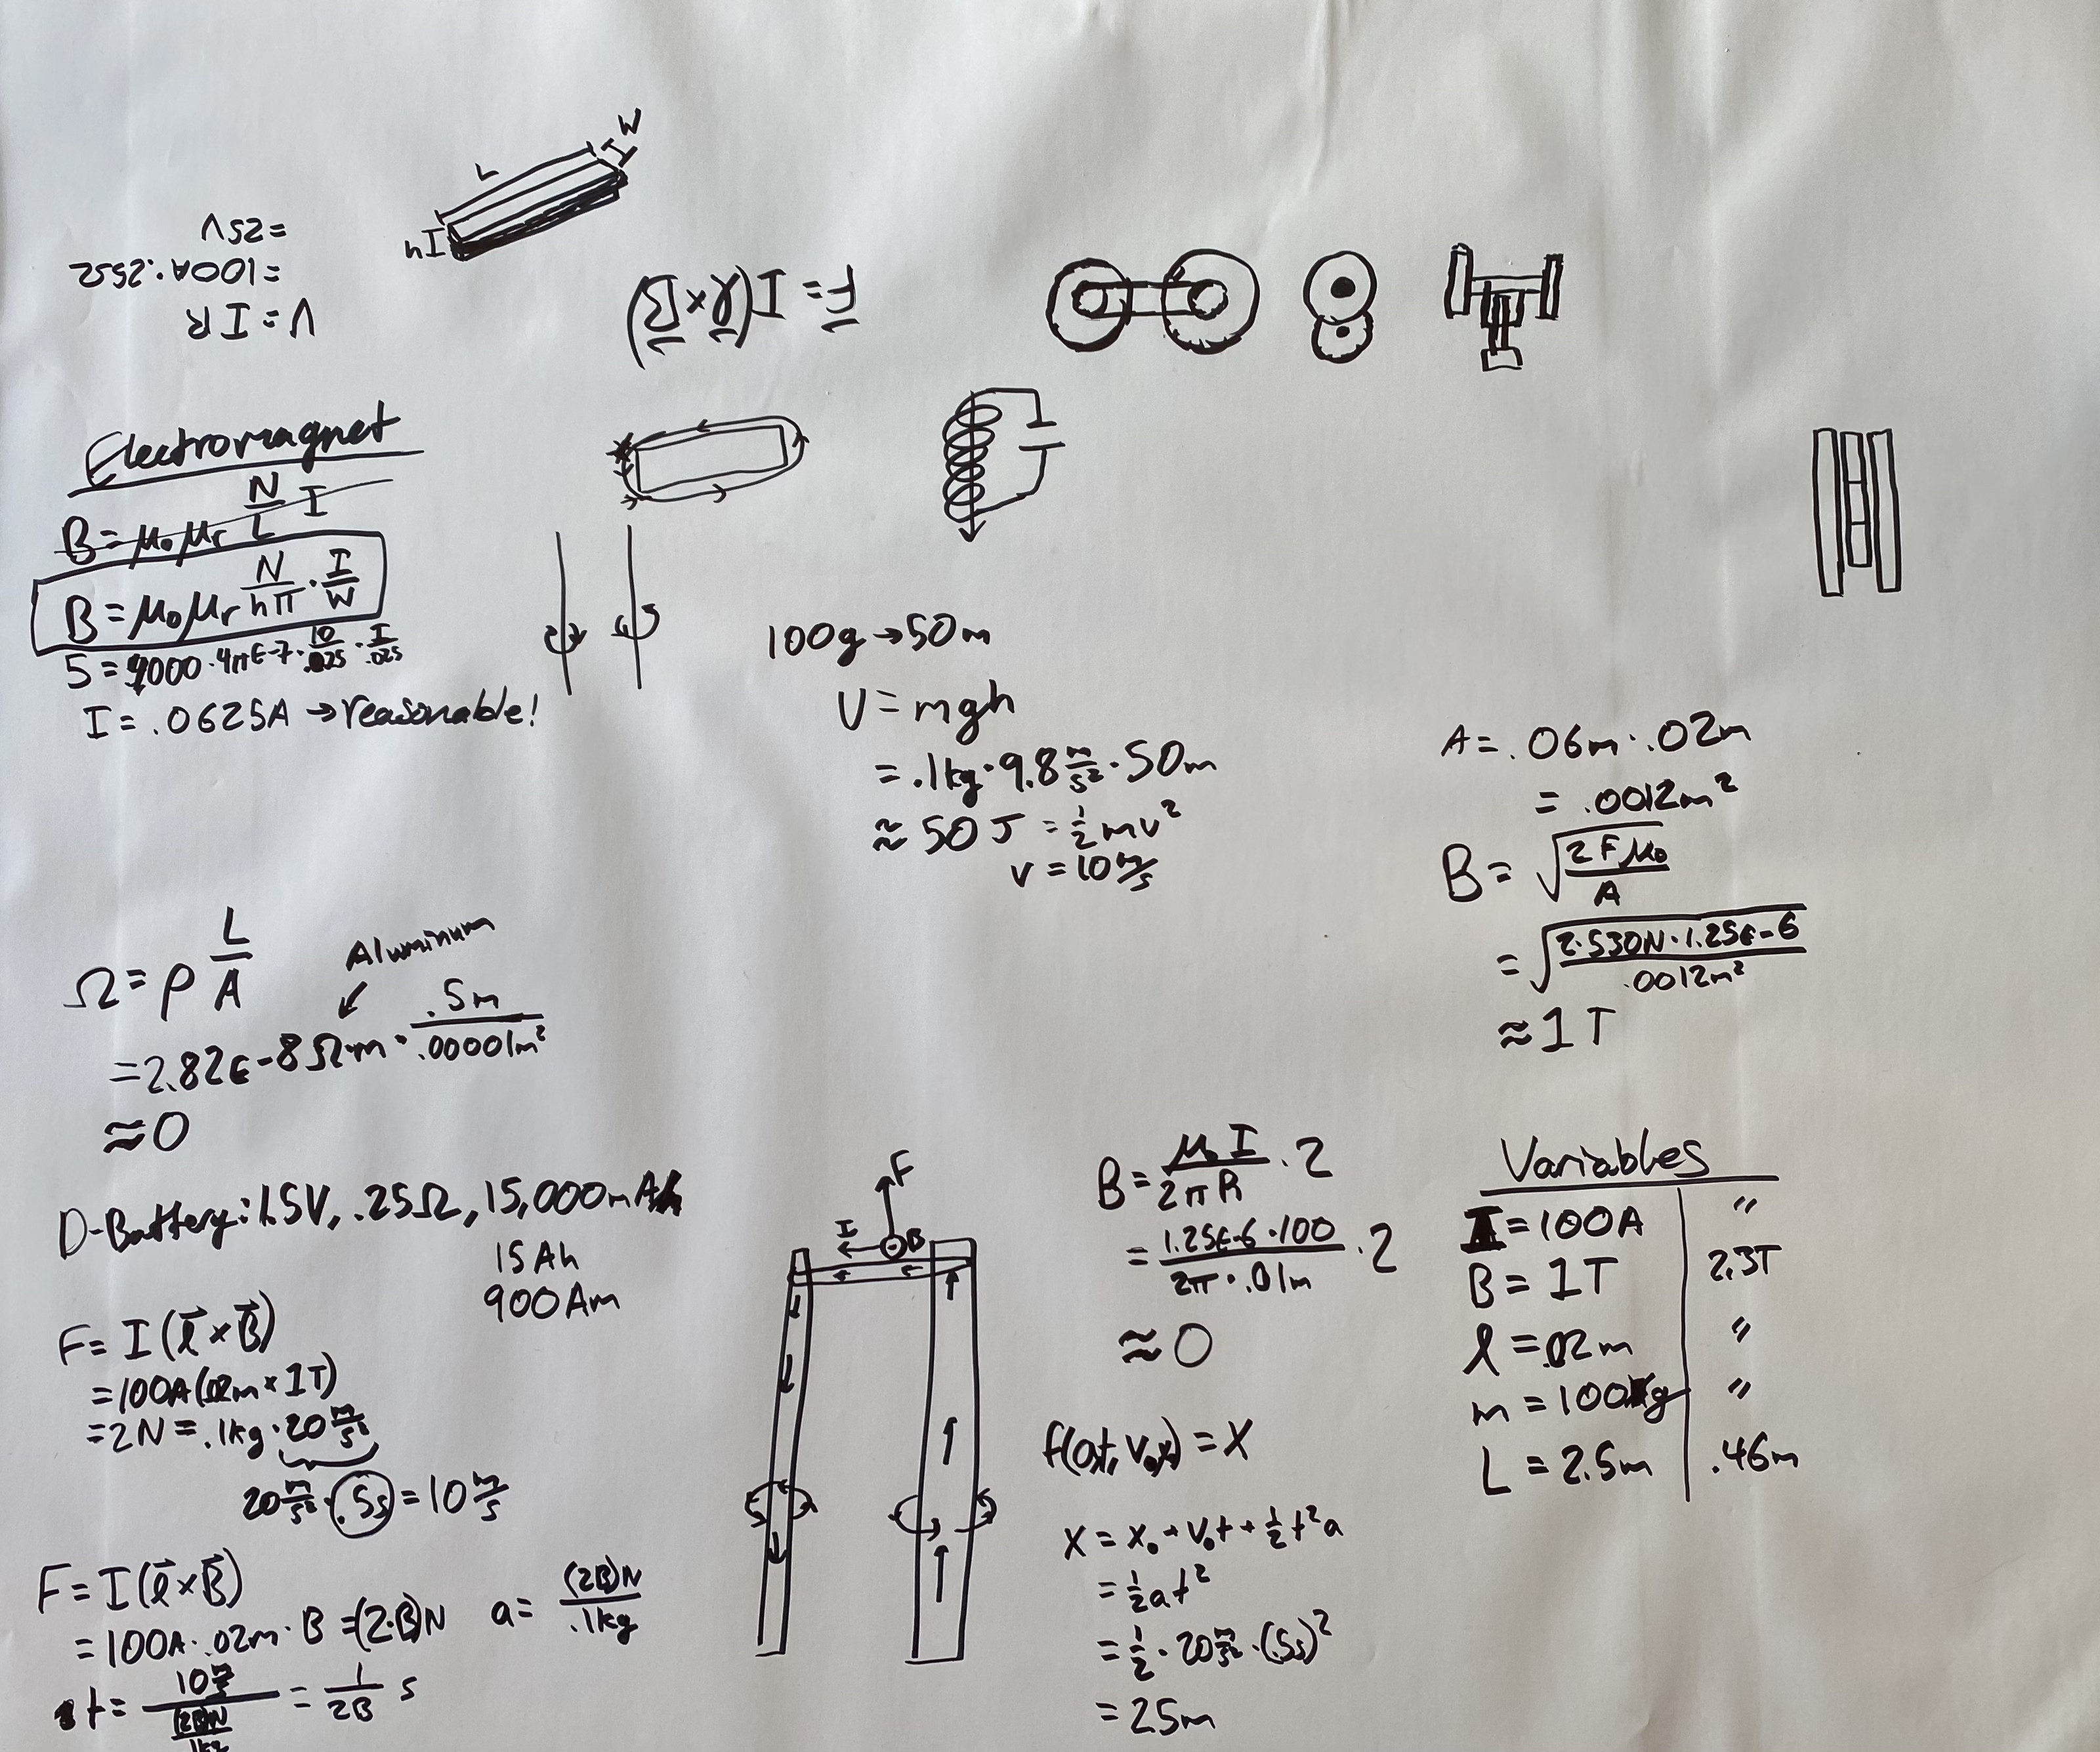 V=IR
=100A·.25Ω
=25V
W
L
h
F=I(l×B)
Electromagnet
B=μ₀μr N/L I
B=μ₀μr N/(hπ)·I/W
5=4000·4πE-7·10/.025·I/.025
I=.0625A→reasonable!
100g→50m
U=mgh
=.1kg·9.8m/s²·50m
≈50J=½mv²
v=10m/s
A=.06m·.02m
=.0012m²
B=√(2Fμ₀/A)
=√(2·530N·1.25E-6/.0012m²)
≈1T
Ω=ρ L/A
Aluminum
=2.82E-8Ω·m·.5m/.00001m²
≈0
D-Battery: 1.5V, .25Ω, 15,000mAh
15Ah
900Am
F=I(l⃗×B⃗)
=100A(.02m×1T)
=2N=.1kg·20m/s²
20m/s²·.5s=10m/s
F=I(l⃗×B⃗)
=100A·.02m·B=(2·B)N
a=(2B)N/.1kg
t=10m/s/((2B)N/.1kg)=1/2B s
F
I
B
B=μ₀I/2πR·2
=1.25E-6·100/2π·.01m·2
≈0
X=X₀+V₀t+½t²a
=½at²
=½·20m/s²·(.5s)²
=2.5m
Variables
I=100A "
B=1T 2.3T
l=.02m "
m=100g "
L=2.5m .46m